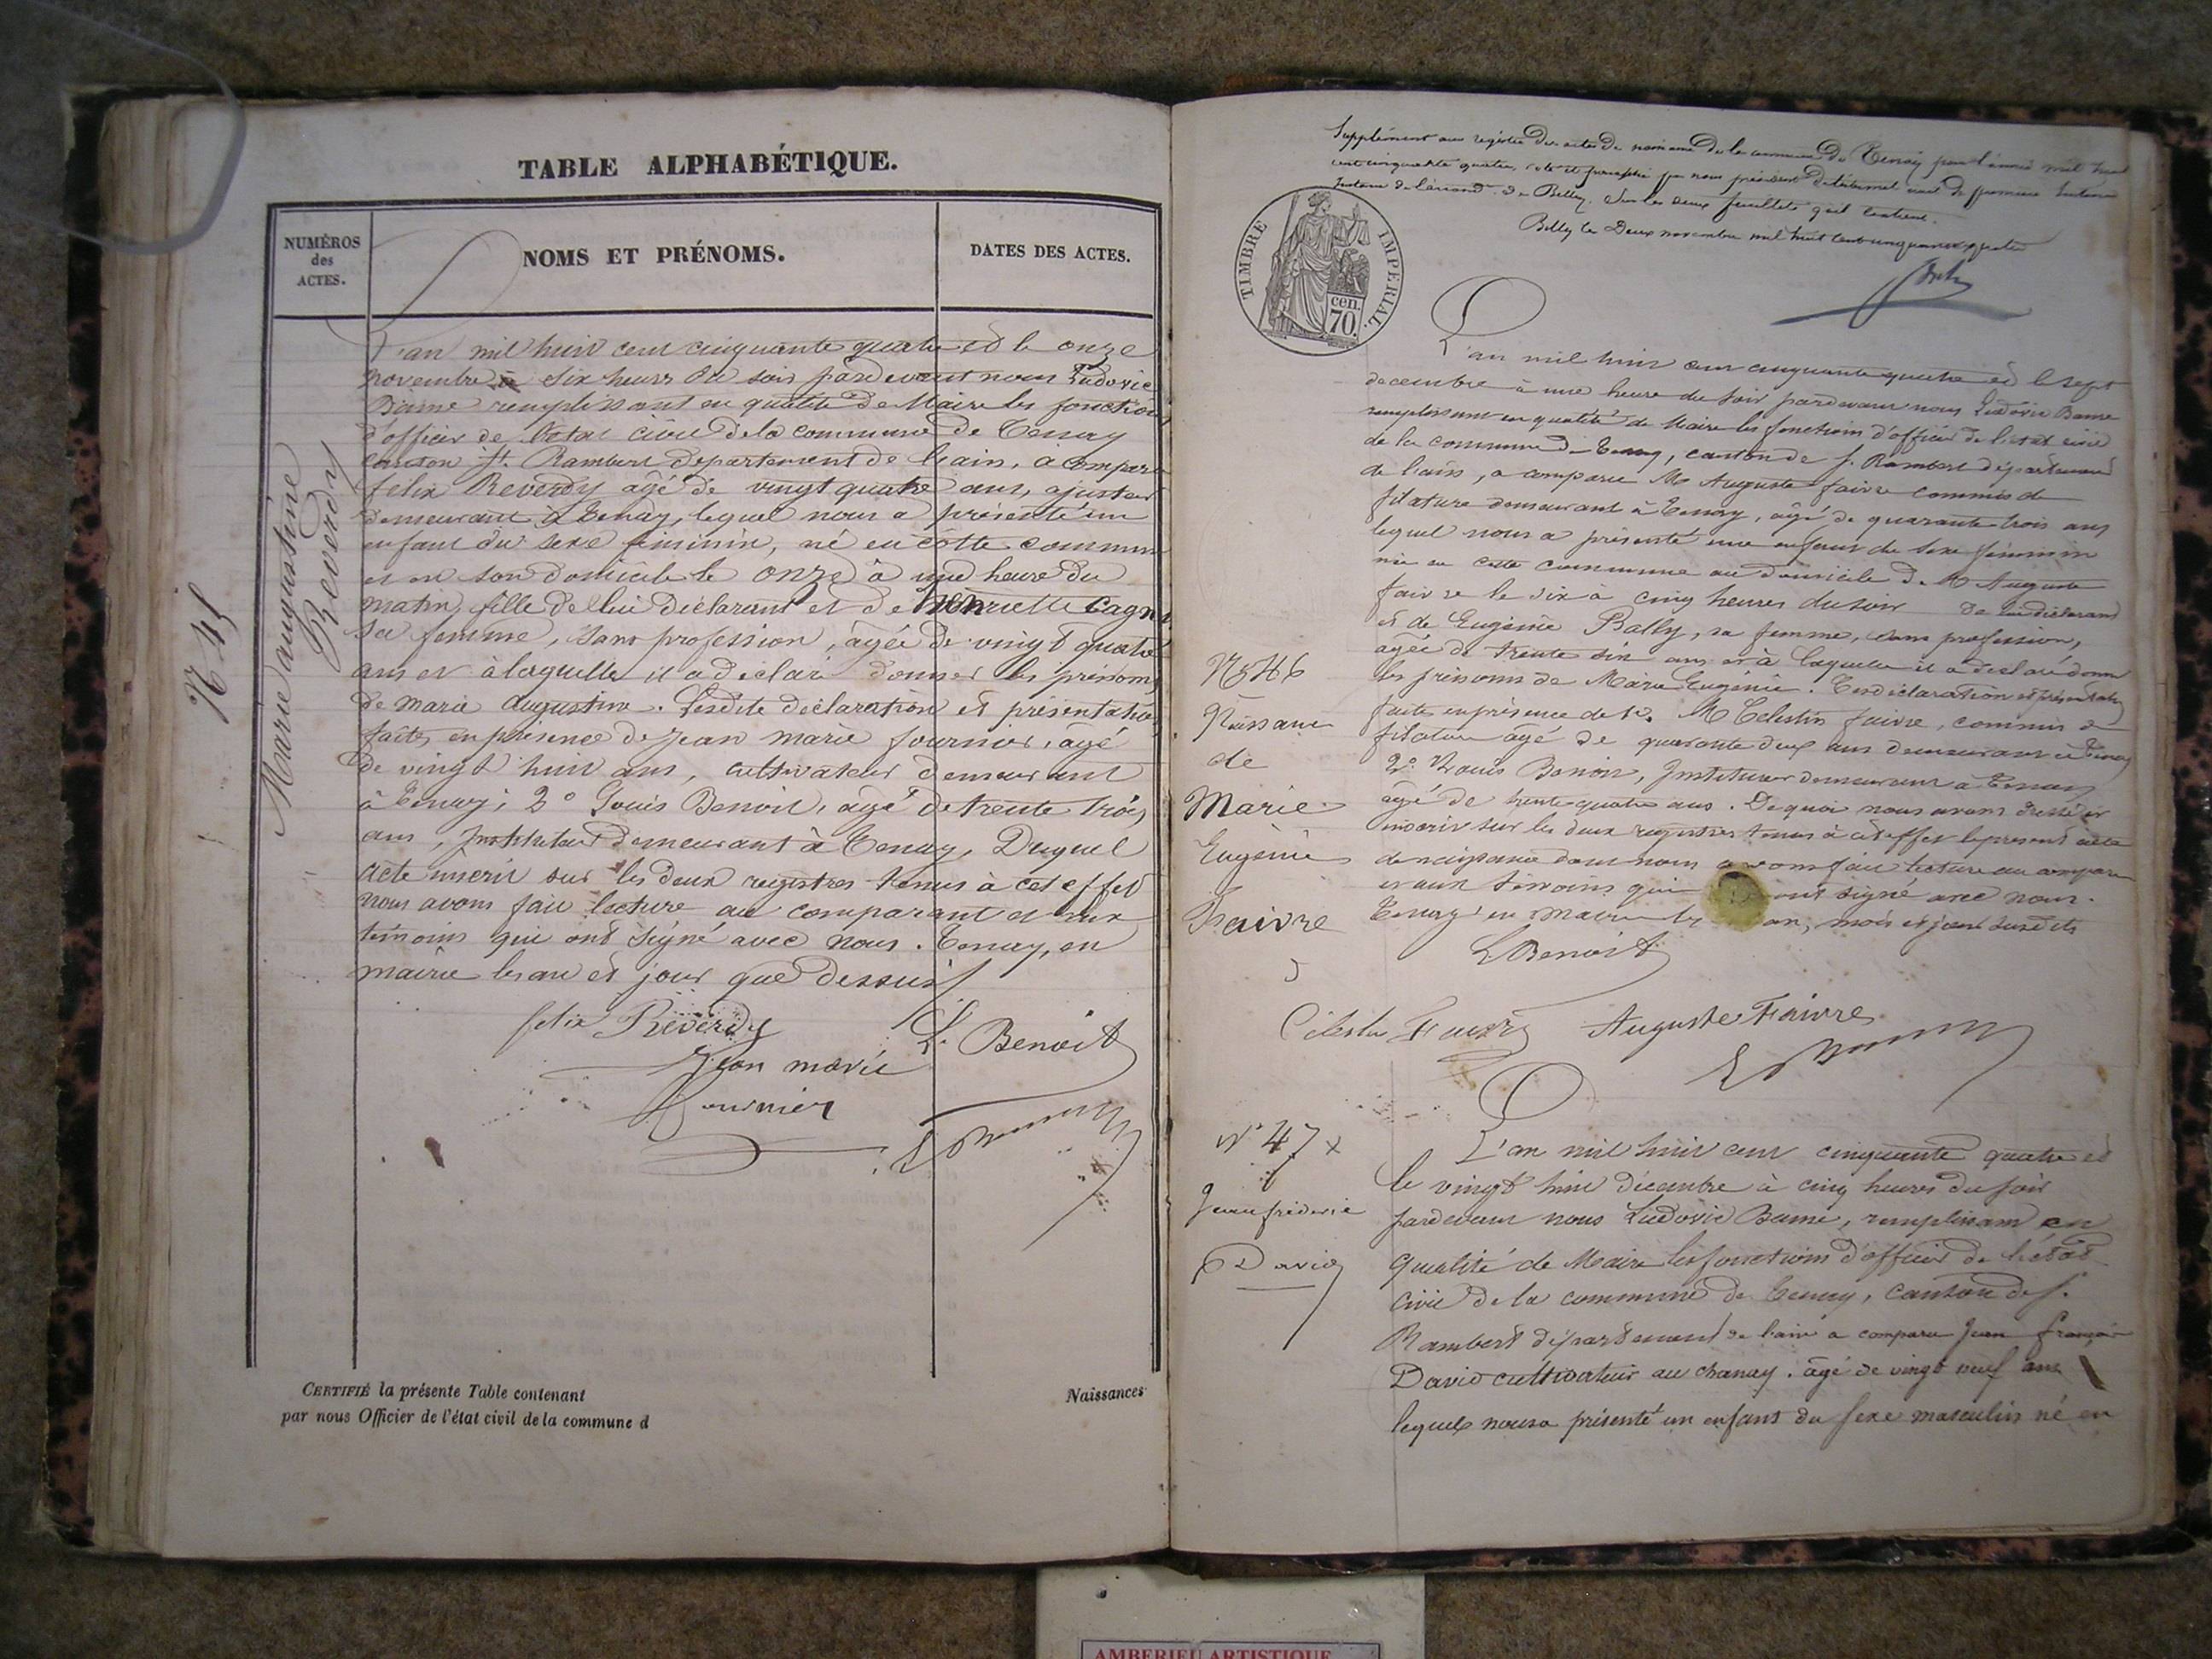 TABLE ALPHABÉTIQUE.
NUMÉROS
des
ACTES.
NOMS ET PRÉNOMS.
DATES DES ACTES.
N 45
Marie augustine
Reverdy
L'an mil huit cent cinquante quatre et le onze
novembre à six heures du soir pardevant nous Ludovic
remplissant en qualité de Maire les fonctions
d'officier de l'état civil de la commune de Tenay
canton St. Rambert département de l'ain, a comparu
félix Reverdy agé de vingt quatre ans, ajusteur
demeurant à Tenay, lequel nous a présenté un
enfant du sexe féminin, né en cette commune
et en son domicile le onze à une heure du
matin, fille de lui déclarant et de henriette
sa femme, sans profession, agée de vingt quatre
ans et à laquelle il a déclaré donner les prénoms
de marie augustine. Lesdite déclaration et présentation
faites en présence de Jean marie fournier, agé
de vingt huit ans, cultivateur demeurant
à Tenay; 2° Louis Benoit, agé de trente trois
ans, Instituteur demeurant à Tenay, Duquel
acte inscrit sur les deux registres tenus à cet effet
nous avons fait lecture au comparant et aux
témoins qui ont signé avec nous. Tenay, en
mairie les an et jour que dessus
felix Reverdy
L. Benoit
Jean marie
fournier
CERTIFIÉ la présente Table contenant
par nous Officier de l'état civil de la commune d
Naissances
Supplément au registre des actes de naissance de la commune de Tenay pour l'année mil huit
cent cinquante quatre, coté et paraphé par nous président du tribunal civil de première Instance
de Belley. Sur les deux feuillets qu'il contient.
Belley le Deux novembre mil huit cent cinquante quatre
TIMBRE IMPERIAL.
cen.
70.
L'an mil huit cent cinquante quatre et le sept
decembre à une heure du soir pardevant nous Ludovic
remplissant en qualité de Maire les fonctions d'officier de l'état civil
de la commune de Tenay, canton de S. Rambert département
de l'ain, a comparu Mr Auguste faivre commis de
filature demeurant à Tenay, agé de quarante trois ans
lequel nous a présenté une enfant du sexe féminin
née en cette commune au domicile de Mr Auguste
faivre le six à cinq heures du soir de lui déclarant
et de Eugénie Bally, sa femme, sans profession,
agée de trente six ans et à laquelle il a déclaré donner
les prénoms de Marie Eugénie. Les déclaration et présentation
faites en présence de 1°. Mr Célestin faivre, commis de
filature agé de quarante deux ans demeurant à Tenay
2° Louis Benoit, Instituteur demeurant à Tenay
agé de trente quatre ans. De quoi nous avons dressé et
inscrit sur les deux registres tenus à cet effet le présent acte
de naissance dont nous avons fait lecture au comparant
et aux témoins qui ont signé avec nous.
Tenay en Mairie les an, mois et jour susdits
N° 46
Naissance
de
Marie
Eugénie
Faivre
L Benoit
Célestin Faivre
Auguste Faivre
N° 47 x
Jean fréderic
David
L'an mil huit cent cinquante quatre et
le vingt huit décembre à cinq heures du soir
pardevant nous Ludovic remplissant en
qualité de Maire les fonctions d'officier de l'état
civil de la commune de Tenay, canton de S.
Rambert département de l'ain a comparu Jean françois
David cultivateur au chanay. agé de vingt neuf ans
lequel nous a présenté un enfant du sexe masculin né en
AMBERIEU ARTISTIQUE